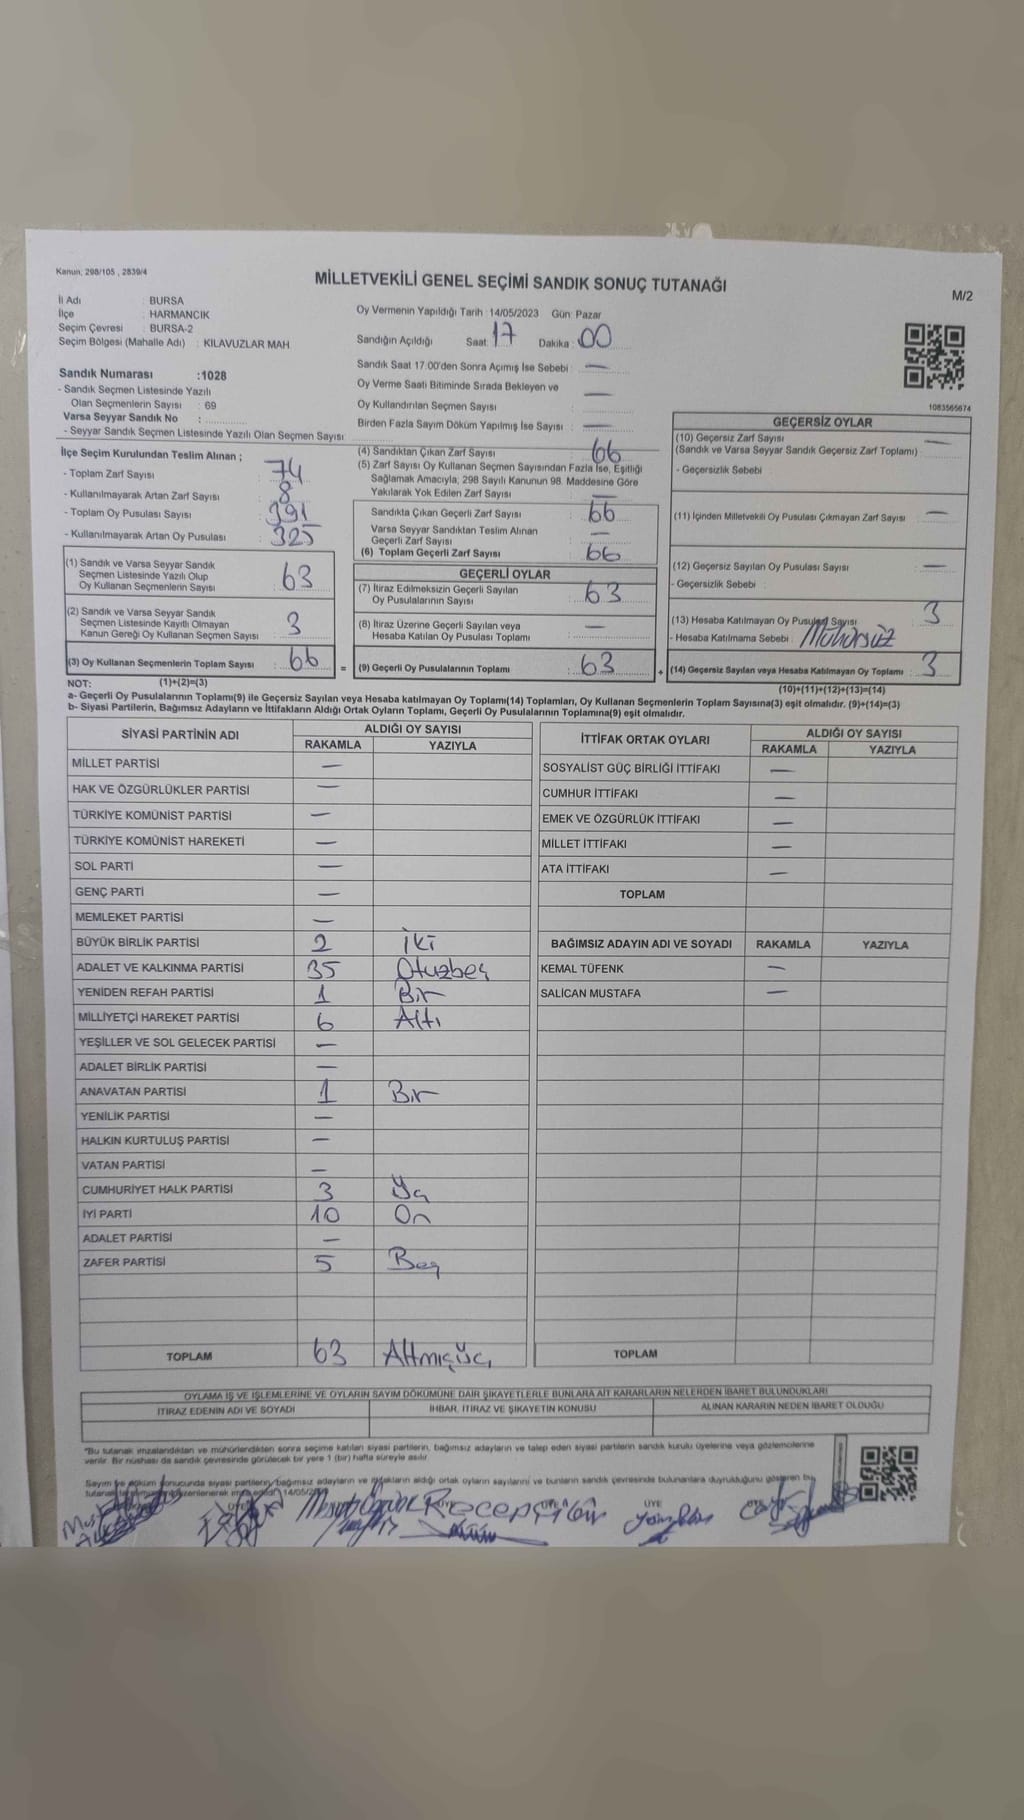 Kanun, 298/105 , 2839/4
MİLLETVEKİLİ GENEL SEÇİMİ SANDIK SONUÇ TUTANAĞI
M/2
İl Adı : BURSA
İlçe : HARMANCIK
Seçim Çevresi : BURSA-2
Seçim Bölgesi (Mahalle Adı) : KILAVUZLAR MAH.
Sandık Numarası :1028
- Sandık Seçmen Listesinde Yazılı
Olan Seçmenlerin Sayısı : 69
Varsa Seyyar Sandık No :
- Seyyar Sandık Seçmen Listesinde Yazılı Olan Seçmen Sayısı
İlçe Seçim Kurulundan Teslim Alınan ;
- Toplam Zarf Sayısı : 74
- Kullanılmayarak Artan Zarf Sayısı : 8
- Toplam Oy Pusulası Sayısı : 391
- Kullanılmayarak Artan Oy Pusulası : 325
(1) Sandık ve Varsa Seyyar Sandık
Seçmen Listesinde Yazılı Olup
Oy Kullanan Seçmenlerin Sayısı : 63
(2) Sandık ve Varsa Seyyar Sandık
Seçmen Listesinde Kayıtlı Olmayan
Kanun Gereği Oy Kullanan Seçmen Sayısı : 3
(3) Oy Kullanan Seçmenlerin Toplam Sayısı : 66 =
(1)+(2)=(3)
Oy Vermenin Yapıldığı Tarih : 14/05/2023 Gün: Pazar
Sandığın Açıldığı Saat: 17 Dakika : 00
Sandık Saat 17.00'den Sonra Açımış İse Sebebi : —
Oy Verme Saati Bitiminde Sırada Bekleyen ve
Oy Kullandırılan Seçmen Sayısı : —
Birden Fazla Sayım Döküm Yapılmış İse Sayısı : —
(4) Sandıktan Çıkan Zarf Sayısı : 66
(5) Zarf Sayısı Oy Kullanan Seçmen Sayısından Fazla İse, Eşitliği
Sağlamak Amacıyla; 298 Sayılı Kanunun 98. Maddesine Göre
Yakılarak Yok Edilen Zarf Sayısı : —
Sandıkta Çıkan Geçerli Zarf Sayısı : 66
Varsa Seyyar Sandıktan Teslim Alınan
Geçerli Zarf Sayısı : —
(6) Toplam Geçerli Zarf Sayısı : 66
GEÇERLİ OYLAR
(7) İtiraz Edilmeksizin Geçerli Sayılan
Oy Pusulalarının Sayısı : 63
(8) İtiraz Üzerine Geçerli Sayılan veya
Hesaba Katılan Oy Pusulası Toplamı : —
(9) Geçerli Oy Pusulalarının Toplamı : 63 +
1083565674
GEÇERSİZ OYLAR
(10) Geçersiz Zarf Sayısı : —
(Sandık ve Varsa Seyyar Sandık Geçersiz Zarf Toplamı)
- Geçersizlik Sebebi :
(11) İçinden Milletvekili Oy Pusulası Çıkmayan Zarf Sayısı : —
(12) Geçersiz Sayılan Oy Pusulası Sayısı : —
- Geçersizlik Sebebi :
(13) Hesaba Katılmayan Oy Pusulası Sayısı : 3
- Hesaba Katılmama Sebebi : Mühürsüz
(14) Geçersiz Sayılan veya Hesaba Katılmayan Oy Toplamı : 3
(10)+(11)+(12)+(13)=(14)
NOT:
a- Geçerli Oy Pusulalarının Toplamı(9) ile Geçersiz Sayılan veya Hesaba katılmayan Oy Toplamı(14) Toplamları, Oy Kullanan Seçmenlerin Toplam Sayısına(3) eşit olmalıdır. (9)+(14)=(3)
b- Siyasi Partilerin, Bağımsız Adayların ve İttifakların Aldığı Ortak Oyların Toplamı, Geçerli Oy Pusulalarının Toplamına(9) eşit olmalıdır.
SİYASİ PARTİNİN ADI ALDIĞI OY SAYISI
RAKAMLA YAZIYLA
MİLLET PARTİSİ —
HAK VE ÖZGÜRLÜKLER PARTİSİ —
TÜRKİYE KOMÜNİST PARTİSİ —
TÜRKİYE KOMÜNİST HAREKETİ —
SOL PARTİ —
GENÇ PARTİ —
MEMLEKET PARTİSİ —
BÜYÜK BİRLİK PARTİSİ 2 İki
ADALET VE KALKINMA PARTİSİ 35 Otuzbeş
YENİDEN REFAH PARTİSİ 1 Bir
MİLLİYETÇİ HAREKET PARTİSİ 6 Altı
YEŞİLLER VE SOL GELECEK PARTİSİ —
ADALET BİRLİK PARTİSİ —
ANAVATAN PARTİSİ 1 Bir
YENİLİK PARTİSİ —
HALKIN KURTULUŞ PARTİSİ —
VATAN PARTİSİ —
CUMHURİYET HALK PARTİSİ 3 Üç
İYİ PARTİ 10 On
ADALET PARTİSİ —
ZAFER PARTİSİ 5 Beş
TOPLAM 63 Altmışüç
İTTİFAK ORTAK OYLARI ALDIĞI OY SAYISI
RAKAMLA YAZIYLA
SOSYALİST GÜÇ BİRLİĞİ İTTİFAKI —
CUMHUR İTTİFAKI —
EMEK VE ÖZGÜRLÜK İTTİFAKI —
MİLLET İTTİFAKI —
ATA İTTİFAKI —
TOPLAM
BAĞIMSIZ ADAYIN ADI VE SOYADI RAKAMLA YAZIYLA
KEMAL TÜFENK —
SALİCAN MUSTAFA —
TOPLAM
OYLAMA İŞ VE İŞLEMLERİNE VE OYLARIN SAYIM DÖKÜMÜNE DAİR ŞİKAYETLERLE BUNLARA AİT KARARLARIN NELERDEN İBARET BULUNDUKLARI
İTİRAZ EDENİN ADI VE SOYADI İHBAR, İTİRAZ VE ŞİKAYETİN KONUSU ALINAN KARARIN NEDEN İBARET OLDUĞU
*Bu tutanak imzalandıktan ve mühürlendikten sonra seçime katılan siyasi partilerin, bağımsız adayların ve talep eden siyasi partilerin sandık kurulu üyelerine veya gözlemcilerine
verilir. Bir nüshası da sandık çevresinde görülecek bir yere 1 (bir) hafta süreyle asılır.
Sayım ve döküm sonucunda siyasi partilerin, bağımsız adayların ve ittifakların aldığı ortak oyların sayılarını ve bunların sandık çevresinde bulunanlara duyrulduğunu gösteren bu
14/05/
ÜYE